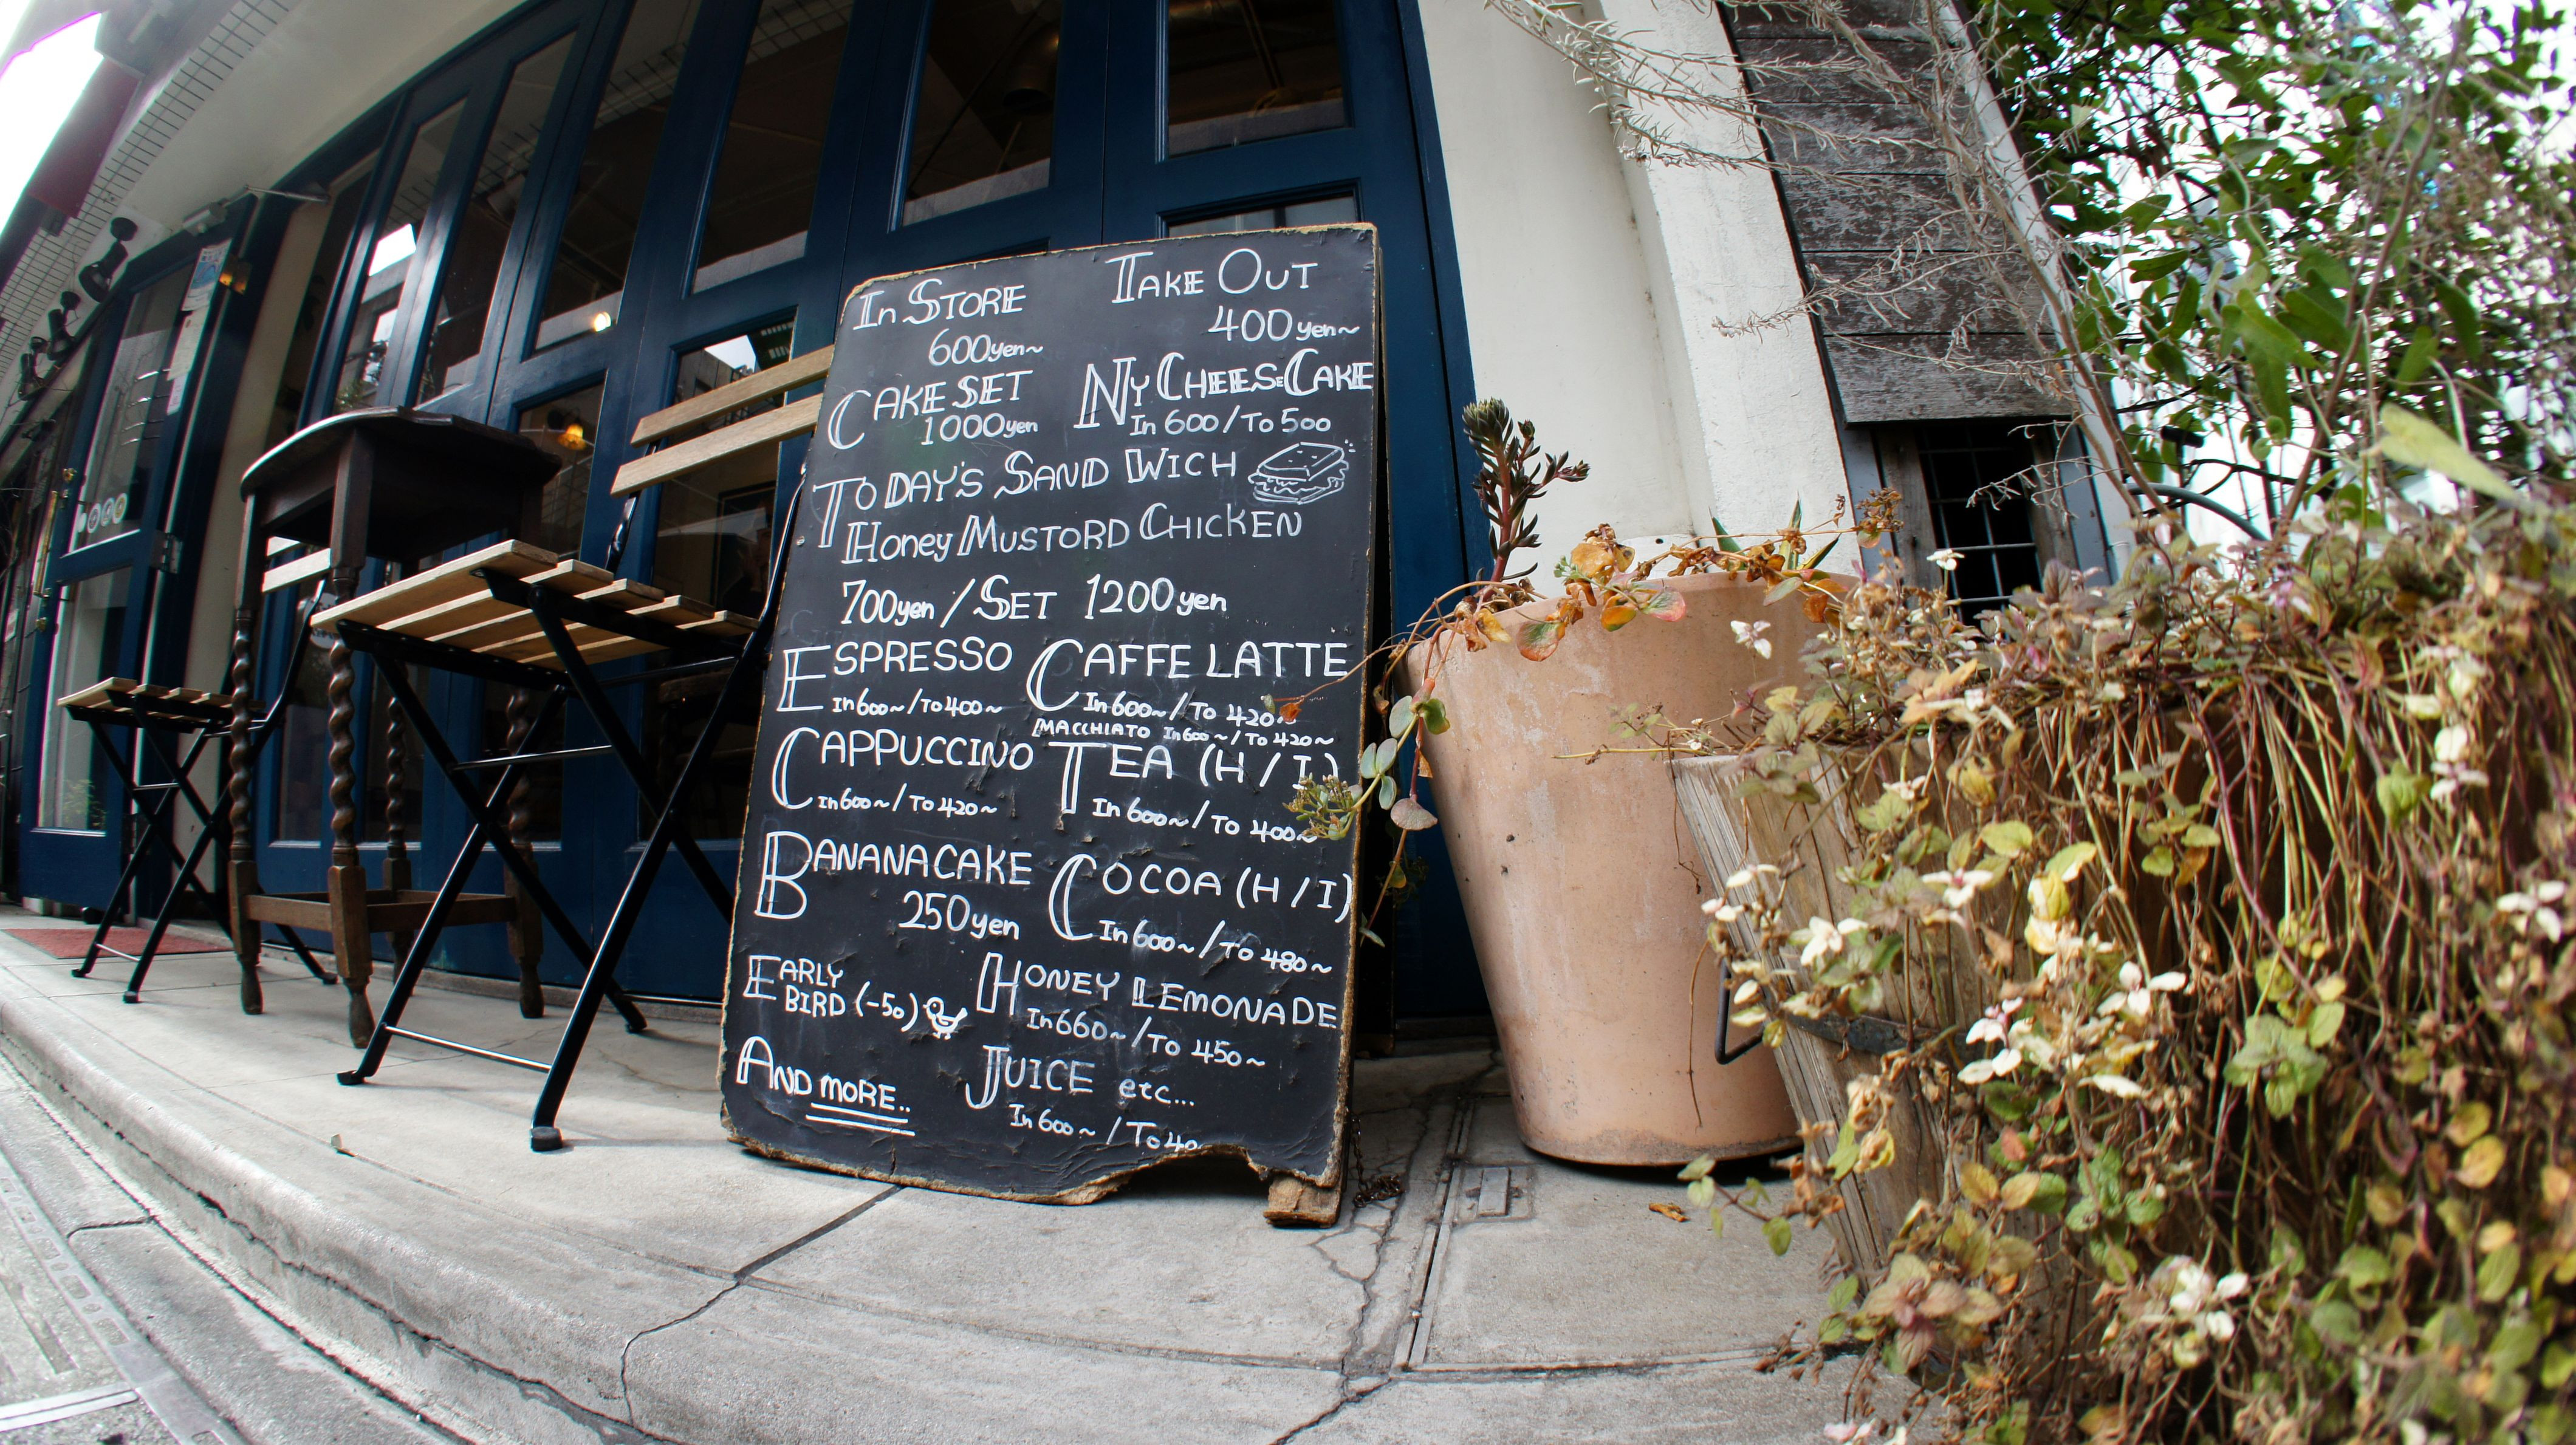 In STORE
600yen~
TAKE OUT
400yen~
CAKE SET
1000yen
NY CHEESECAKE
In 600/To 500
TODAY'S SAND WICH
Honey MUSTORD CHICKEN
700yen/SET 1200yen
ESPRESSO
In600~/To400~
CAFFE LATTE
In600~/To 420~
MACCHIATO In600~/To 420~
CAPPUCCINO
In600~/To420~
TEA (H/I)
In 600~/To 400~
BANANACAKE
250yen
COCOA (H/I)
In600~/To 480~
EARLY
BIRD (-50)
HONEY LEMONADE
In660~/To 450~
AND MORE..
JUICE etc...
In600~/To40